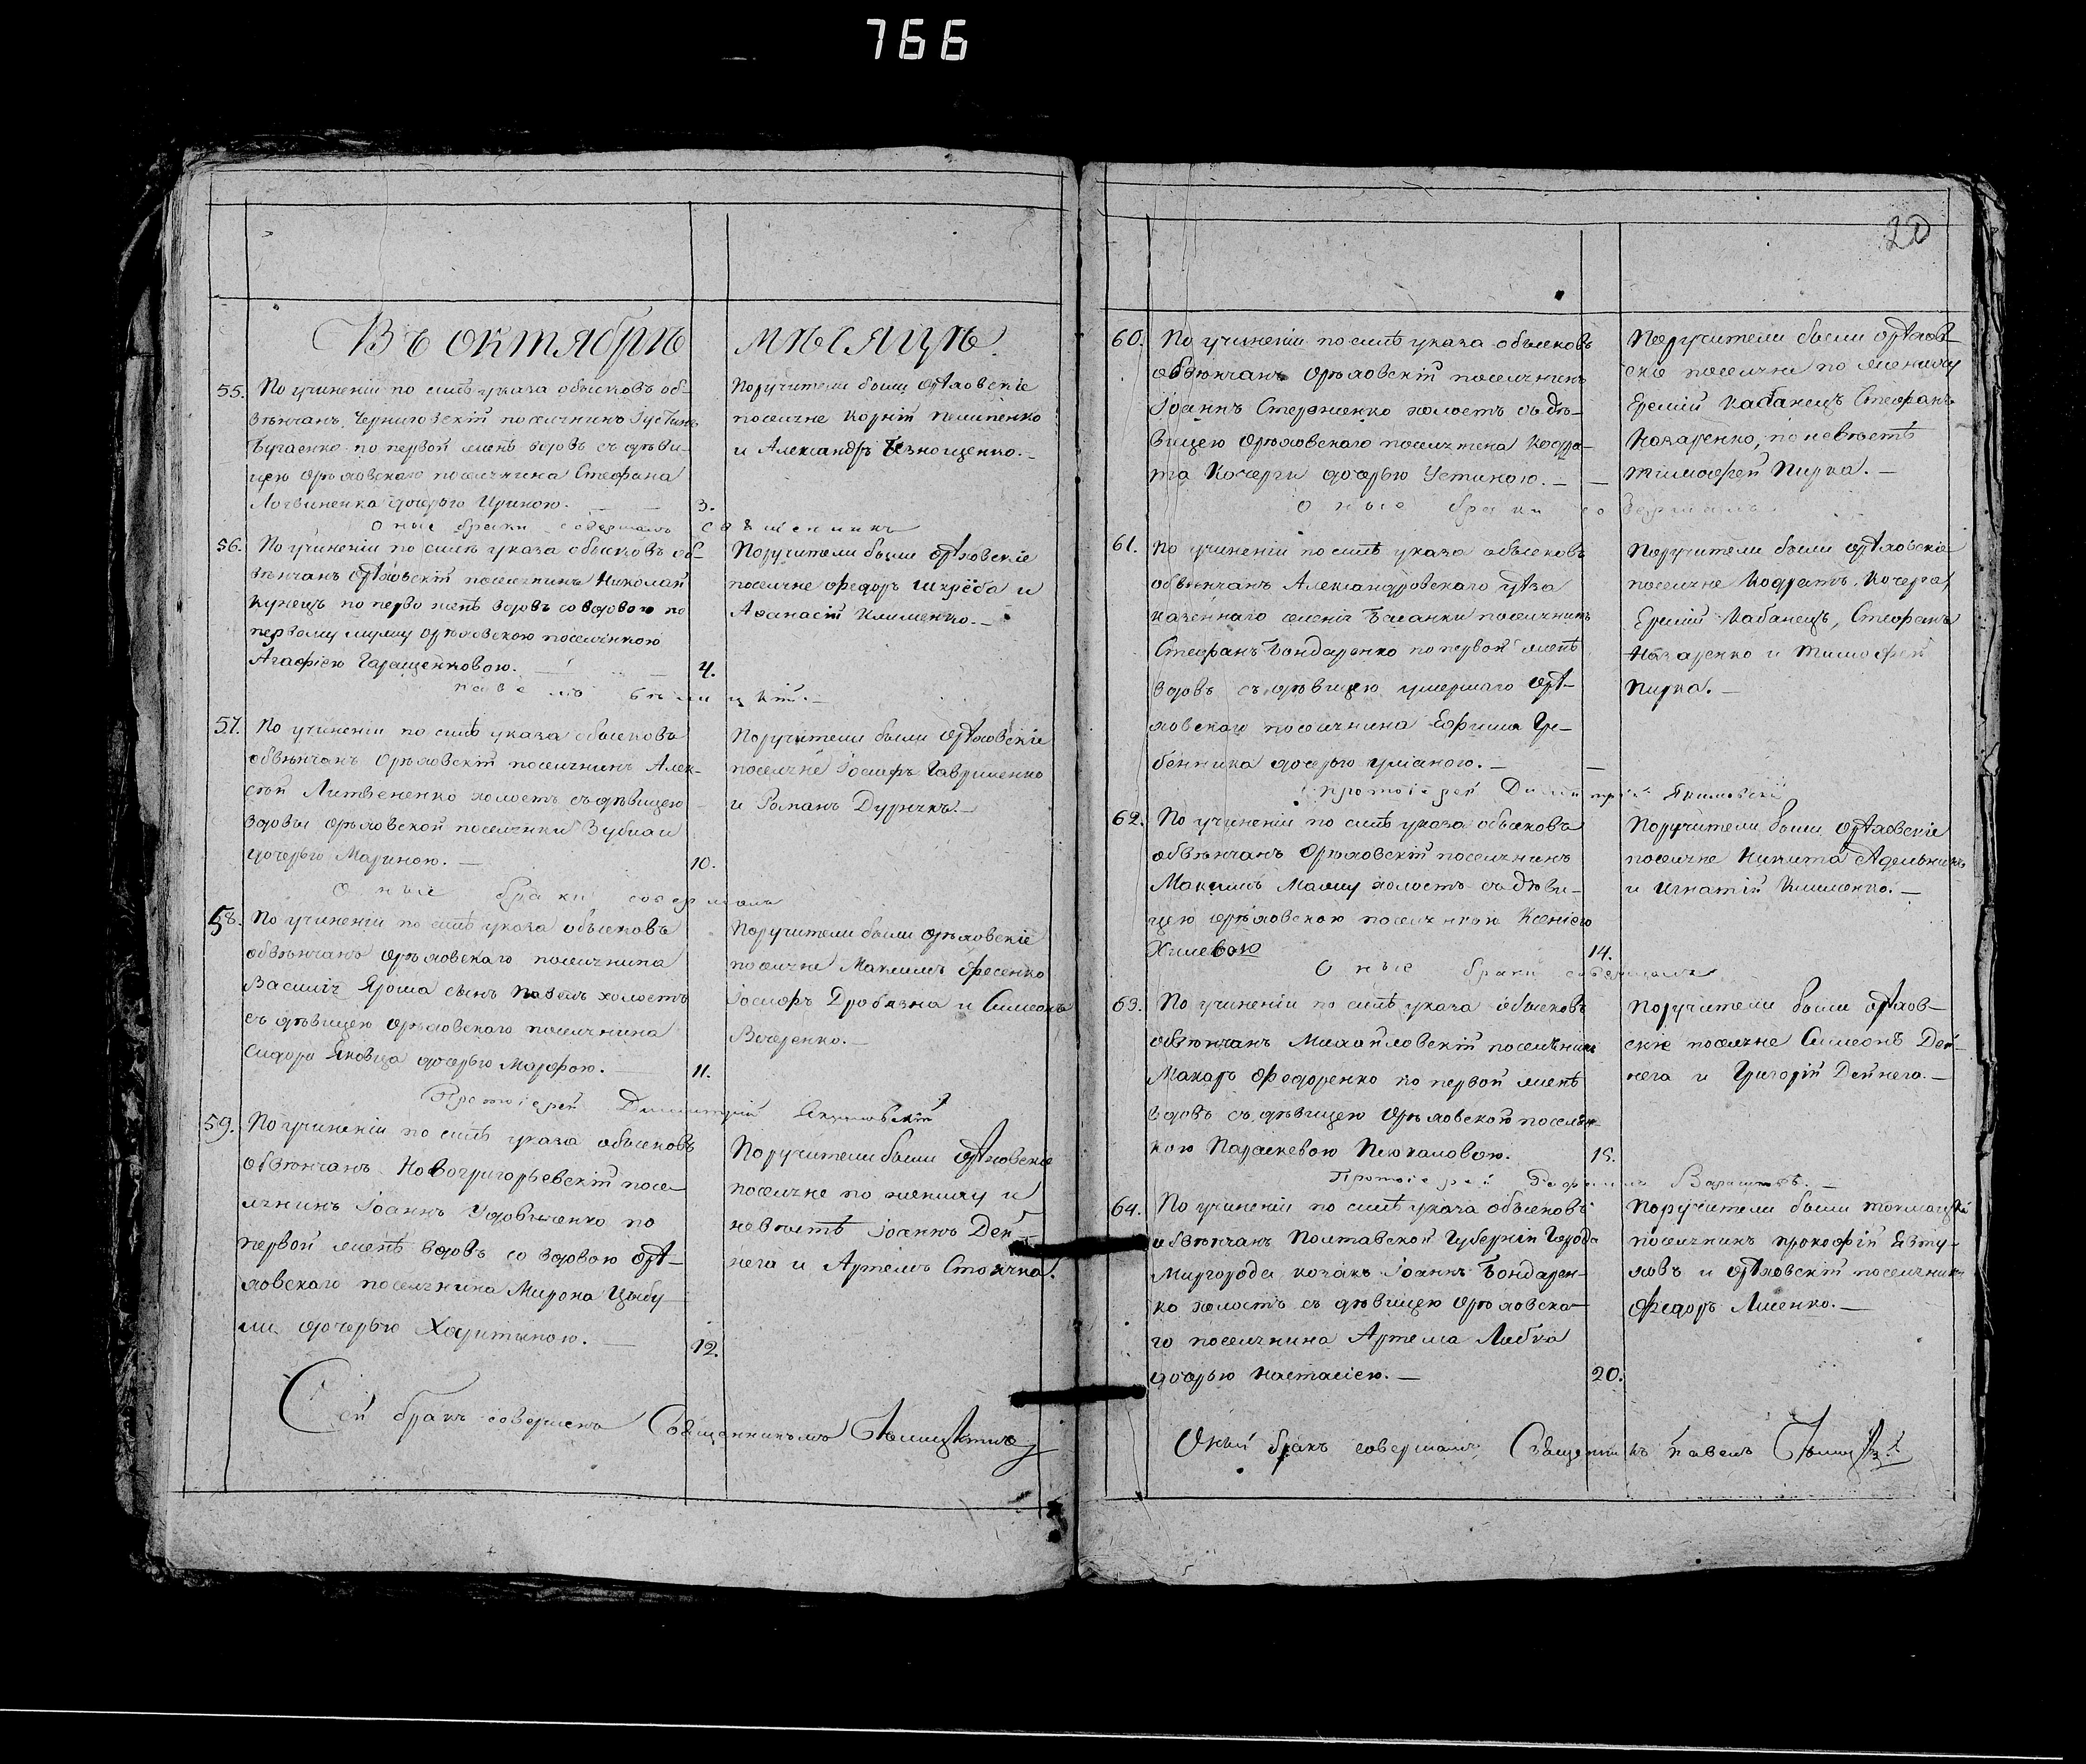 766
20
Въ октябрѣ мѣсяцѣ.
55. По учиненіи по силѣ указа обысковъ об-
вѣнчанъ Черниговскій поселянинъ Густинъ
Бугаенко по первой женѣ вдовъ съ дѣви-
цею Орѣховскаго поселянина Стефана
Логвиненка дочерью Ириною. 3.
Поручители были Орѣховскіе
поселяне Корнѣй Пелипенко
и Александръ Безнощенко.
Оные браки совершалъ священникъ
56. По учиненіи по силѣ указа обысковъ об-
вѣнчанъ Орѣховскій поселянинъ Николай
Кунецъ по перво женѣ вдовъ со вдовою по
первому мужу Орѣховскою поселянкою
Агафіею Гаращенковою. 4.
Поручители были Орѣховскіе
поселяне Федоръ Шкрёба и
Афанасій Клименко.
Павелъ
57. По учиненіи по силѣ указа обысковъ
обвѣнчанъ Орѣховскій поселянинъ Алек-
сѣй Литвененко холостъ съ дѣвицею
вдовы Орѣховской поселянки
дочерью Мариною. 10.
Поручители были Орѣховскіе
поселяне Іосифъ Гавриленко
и Романъ Дуричкъ.
Оные браки совершалъ
58. По учиненіи по силѣ указа обысковъ
обвѣнчанъ Орѣховскаго поселянина
Василія Яроша сынъ Павелъ холостъ
съ дѣвицею Орѣховскаго поселянина
Сидора Яковца дочерью Марфою. 11.
Поручители были Орѣховскіе
поселяне Максимъ Фесенко
Іосифъ Дробязна и Симеонъ
Вечеренко.
Протоіерей Димитрій Якимовскій
59. По учиненіи по силѣ указа обысковъ
обвѣнчанъ Новогригорьевскій посе-
лянинъ Іоаннъ Удовыченко по
первой женѣ вдовъ со вдовою Орѣ-
ховскаго поселянина Мирона Цыбу
ли дочерью Харитыною. 12.
Поручители были Орѣховскіе
поселяне по жениху и
невѣстѣ Іоаннъ Дей-
нега и Артемъ Стоячка.
Сей бракъ совершенъ Священникомъ
60. По учиненіи по силѣ указа обысковъ
обвѣнчанъ Орѣховскій поселянинъ
Іоаннъ Стерженко холостъ съ дѣ-
вицею Орѣховскаго поселянина Кодра-
та Кочерги дочерью Устиною.
Поручители были Орѣхов-
скіе поселяне по жениху
Еремій Кабанецъ Стефанъ
Назаренко, по невѣстѣ
Тимофей Пирка.
Оные браки совершалъ
61. По учиненіи по силѣ указа обысковъ
обвѣнчанъ Александровскаго уѣзда
казеннаго селенія Басанки поселянинъ
Стефанъ Бондаренко по первой женѣ
вдовъ съ дѣвицею умершаго Орѣ-
ховскаго поселянина Ефима Гре-
бенника дочерью
Поручители были Орѣховскіе
поселяне Кодратъ Кочерга,
Еремій Кабанецъ, Стефанъ
Назаренко и Тимофей
Пирка.
Протоіерей Димитрій Якимовскій
62. По учиненіи по силѣ указа обысковъ
обвѣнчанъ Орѣховскій поселянинъ
Максимъ холостъ съ дѣви-
цею Орѣховскою поселянкою Ксеніею
Хилевою 14.
Поручители были Орѣховскіе
поселяне Никита
и Игнатій Клименко.
Оные браки совершалъ
63. По учиненіи по силѣ указа обысковъ
обвѣнчанъ Михайловскій поселянинъ
Макаръ Федоренко по первой женѣ
вдовъ съ дѣвицею Орѣховской поселян-
кою Параскевою Пюкаловою. 15.
Поручители были Орѣхов-
скіе поселяне Симеонъ Дей-
нега и Григорій Дейнега.
Протоіерей
64. По учиненіи по силѣ указа обысковъ
обвѣнчанъ Полтавской Губерніи Города
Миргорода козакъ Іоаннъ Бондарен-
ко холостъ съ дѣвицею Орѣховска-
го поселянина Артема Любка
дочерью Настасіею. 20.
Поручители были Токмацкій
поселянинъ Прокофій Евту-
ховъ и Орѣховскій поселянинъ
Федоръ Лисенко.
Оный бракъ совершалъ Священникъ Павелъ